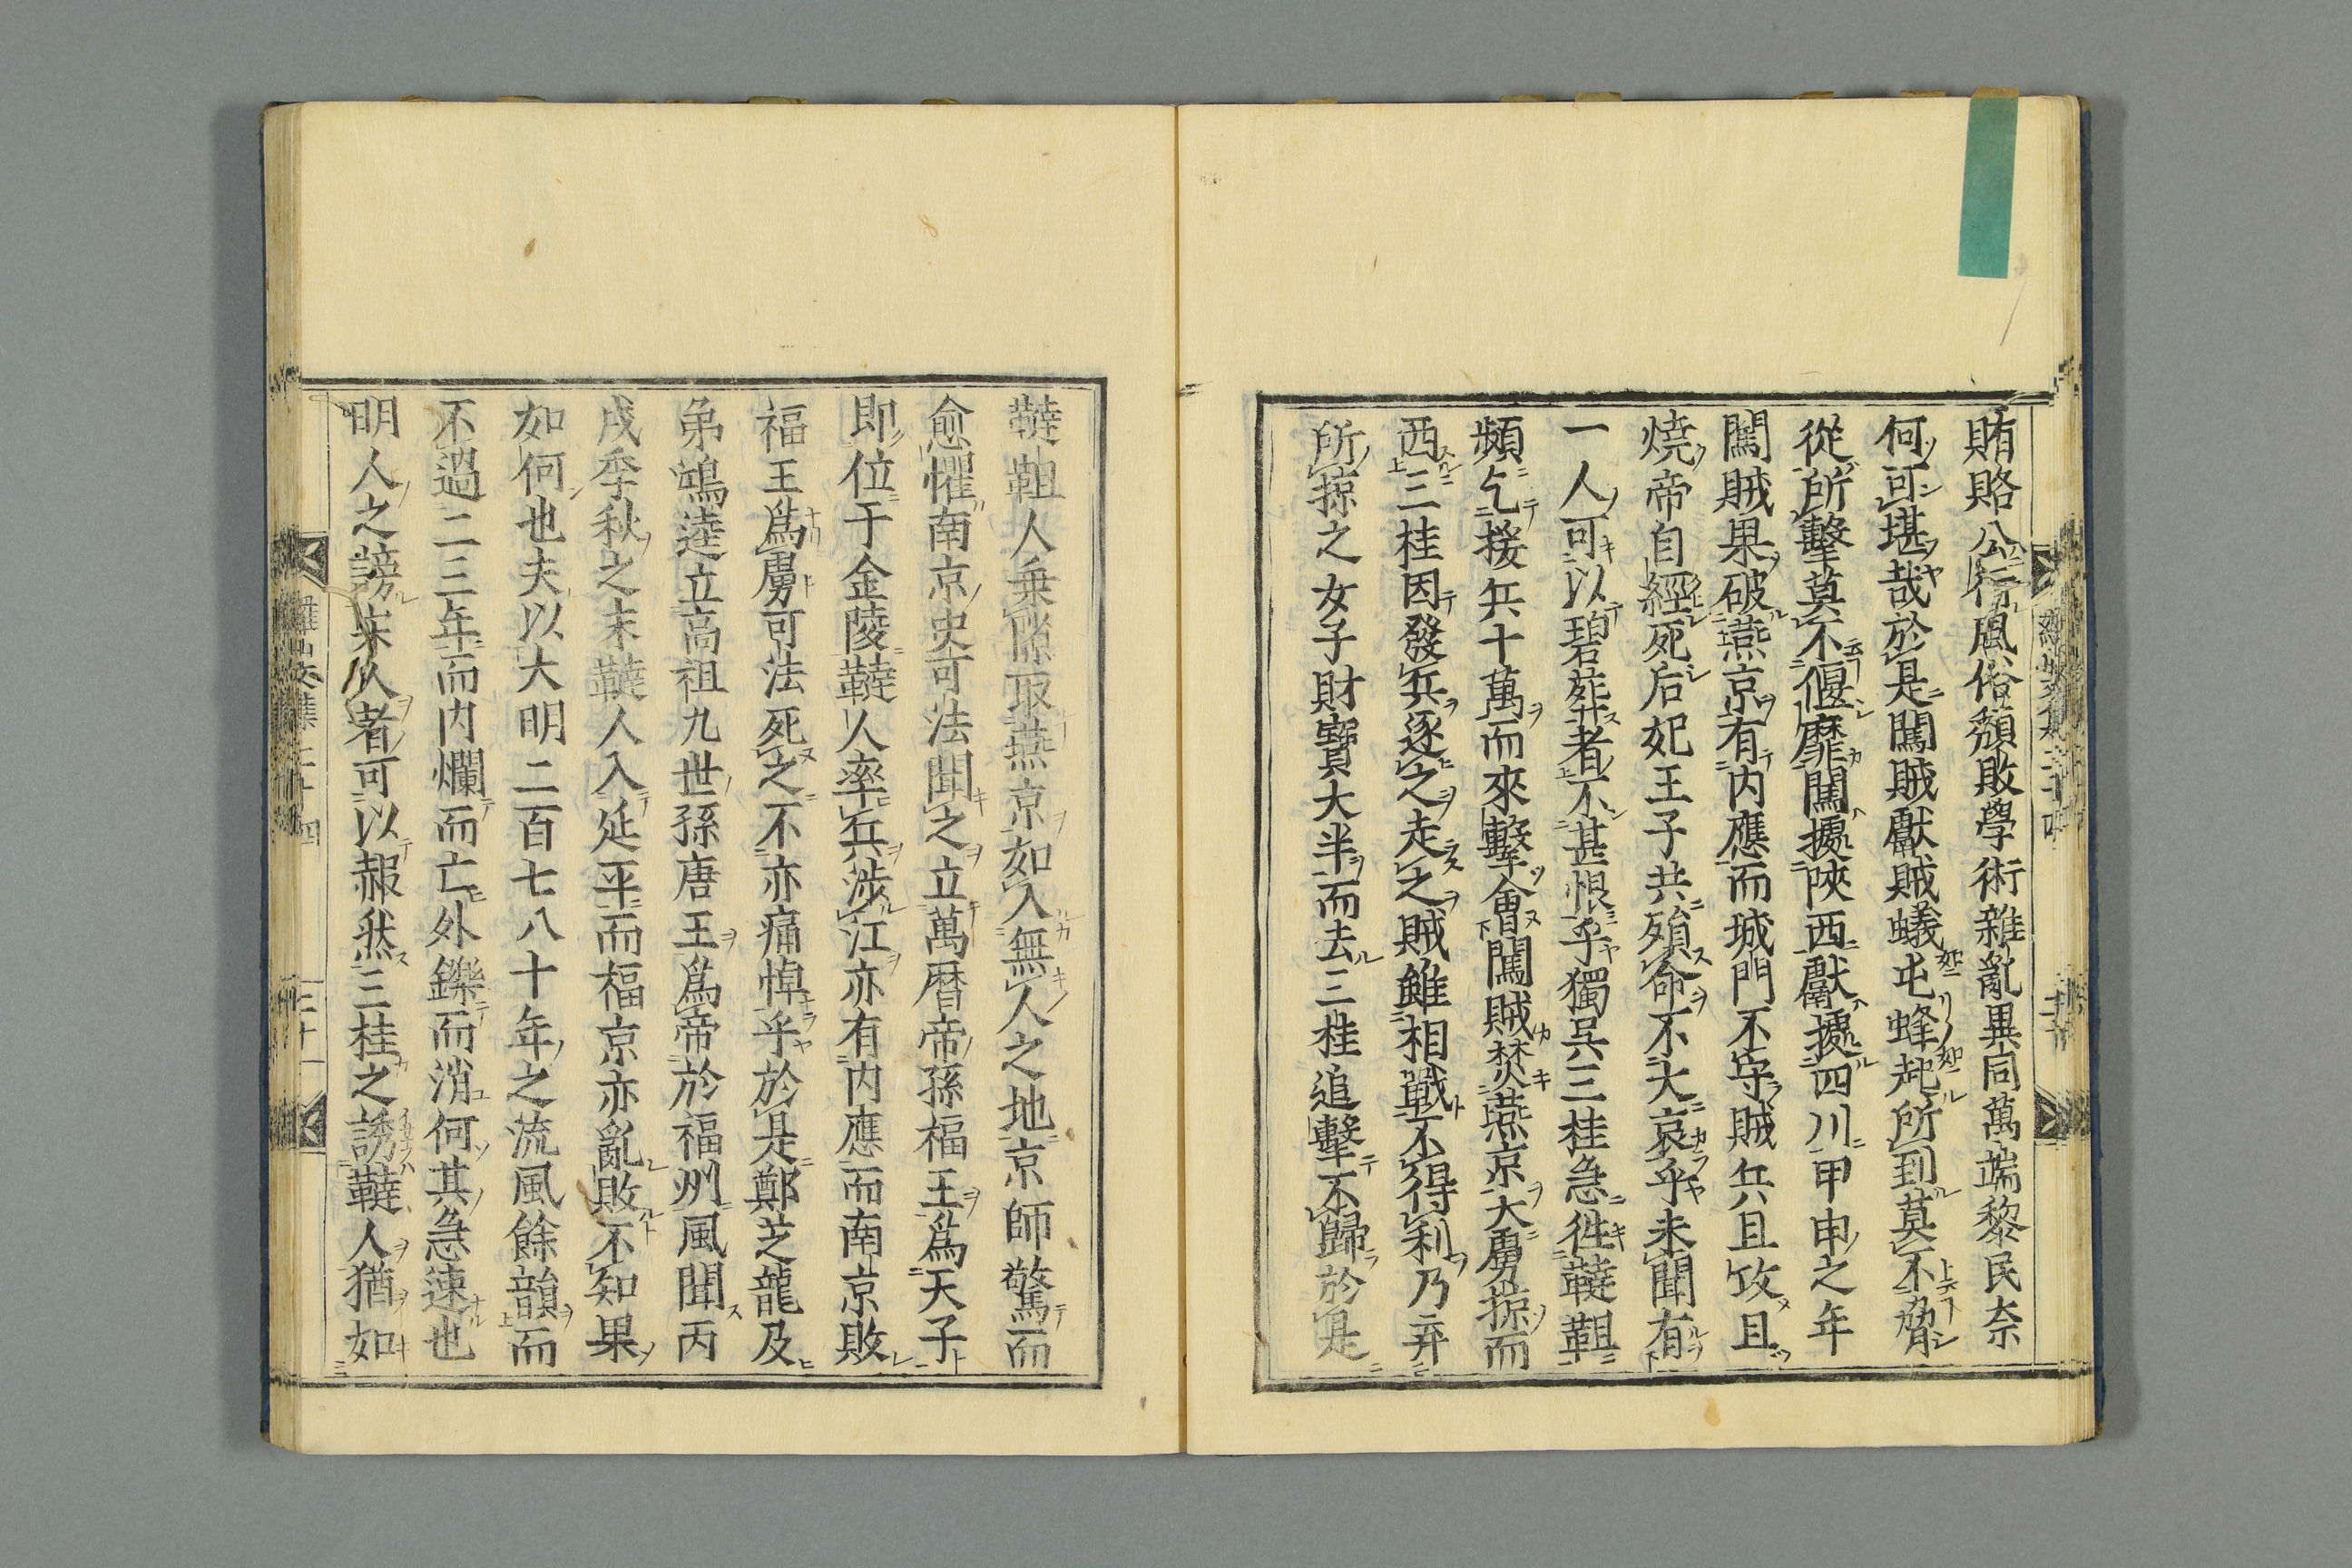 賄賂公行風俗頽敗學術雜亂異同萬端黎民奈
何可堪哉於是闖賊獻賊蟻屯蜂起所到莫不脅
從所擊莫不偃靡闖據陜西獻據四川甲申之年
闖賊果破燕京有内應而城門不守賊兵且攻且
燒帝自經死后妃王子共殞命不大哀乎未聞有
一人可以碧葬者不甚恨乎獨呉三桂急徃韃靼
頻乞援兵十萬而來擊會闖賊焚燕京大虜掠而
西三桂因發兵逐之走之賊雖相戰不得利乃弃
所掠之女子財寶大半而去三桂追擊不歸於是
韃靼人乗隙取燕京如入無人之地京師驚而
愈懼南京史可法聞之立萬暦帝孫福王爲天子
即位于金陵韃人率兵渉江亦有内應而南京敗
福王爲虜可法死之不亦痛悼乎於是鄭芝龍及
弟鴻逵立高祖九世孫唐王爲帝於福州風聞丙
戌季秋之末韃人入延平而福京亦亂敗不知果
如何也夫以大明二百七八十年之流風餘韻而
不過二三年而内爛而亡外鑠而消何其急速也
明人之謗宋人者可以赧然三桂之誘韃人猶如